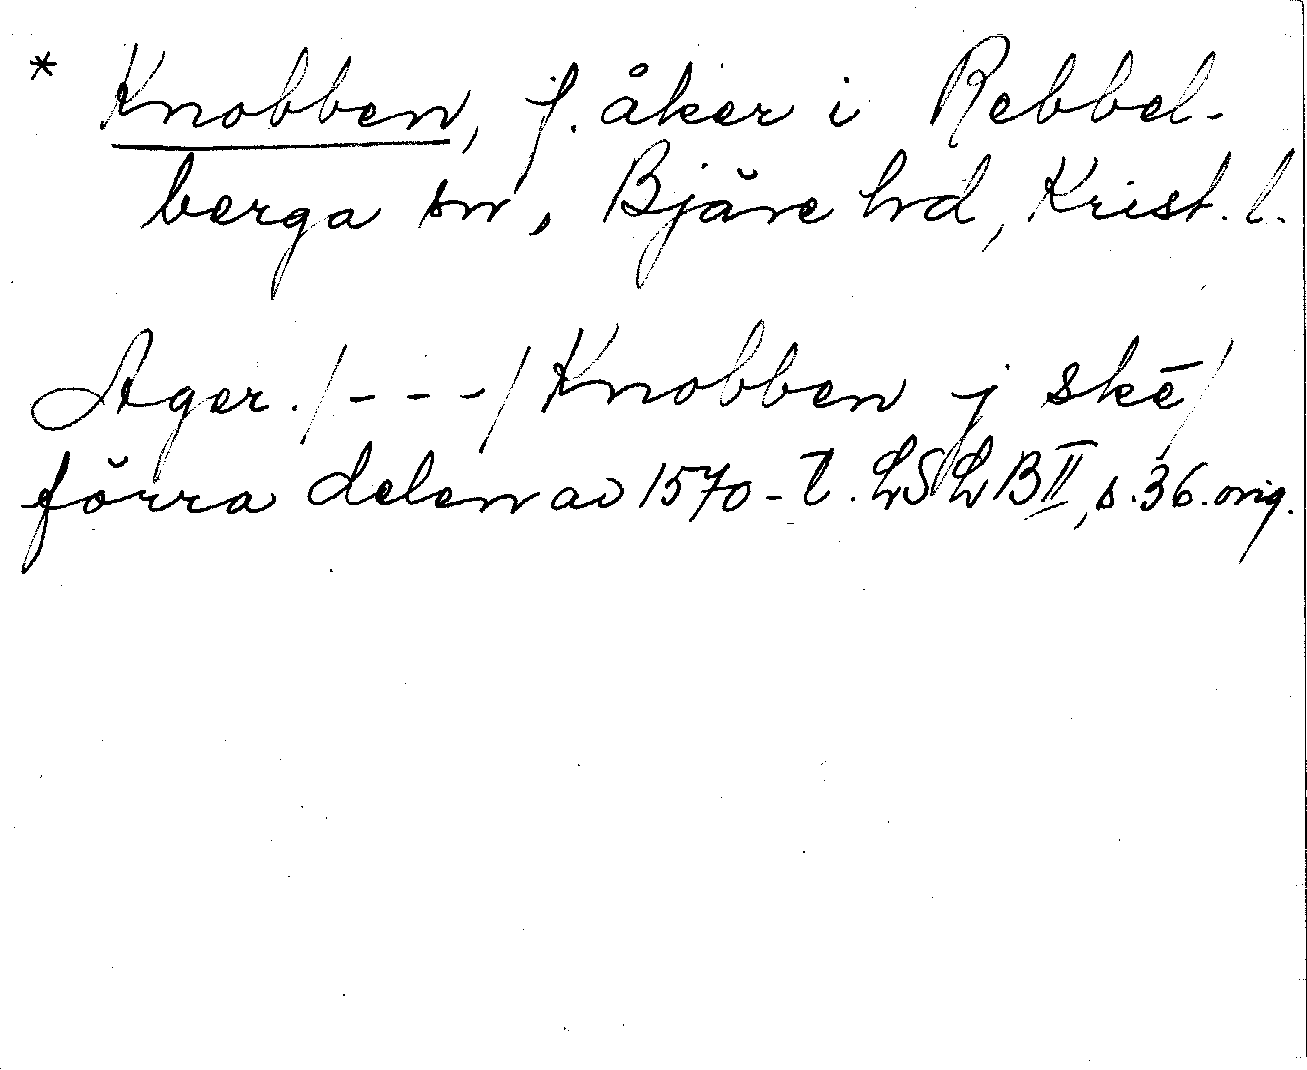 * Knobben, f. åker i Rebbel-
berga sn, Bjäre hd, Krist. l.
Ager. /---/ Knobben j skē/
förra delen av 1570-t. LSLB II, s. 36. orig.